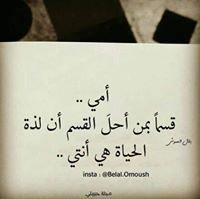 أمي ..
قسماً بمن أحلَ القسم أن لذة
الحياة هي أنتي ..
insta : @Belal.Omoush